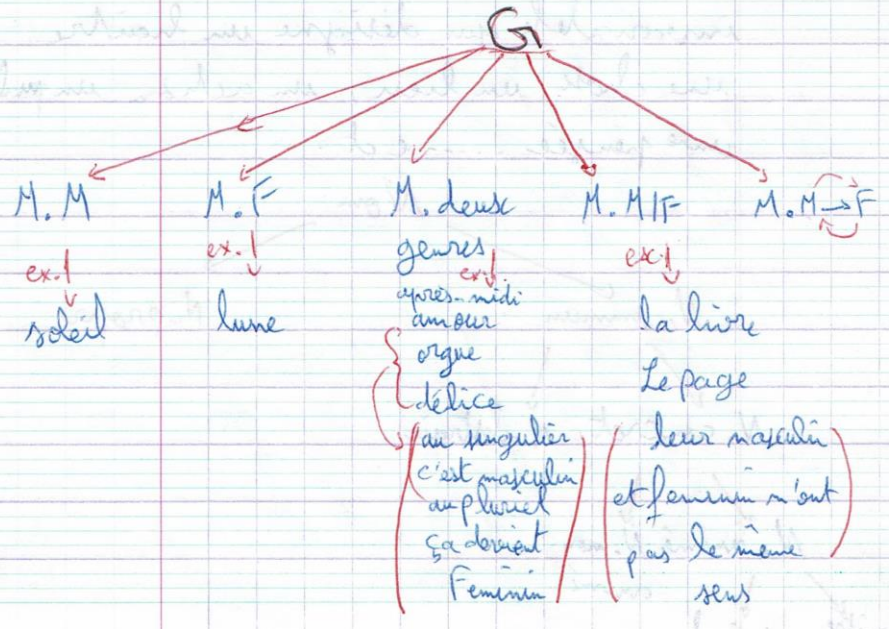 G
M.M
M.F
M. deux
genres
M. M/F
M. M → F
ex.
soleil
ex.
lune
ex.
après-midi
amour
orgue
délice
au singulier
c'est masculin
au pluriel
ça devient
Feminin
ex.
la livre
Le page
leur masculin
et feminin n'ont
pas le même
sens